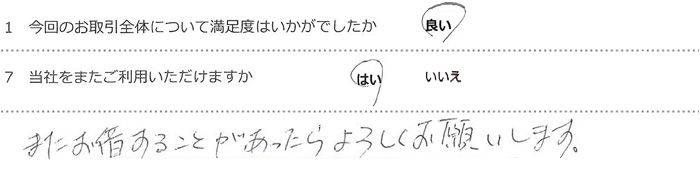 1 今回のお取引全体について満足度はいかがでしたか 良い
7 当社をまたご利用いただけますか はい いいえ
またお借することがあったらよろしくお願いします。